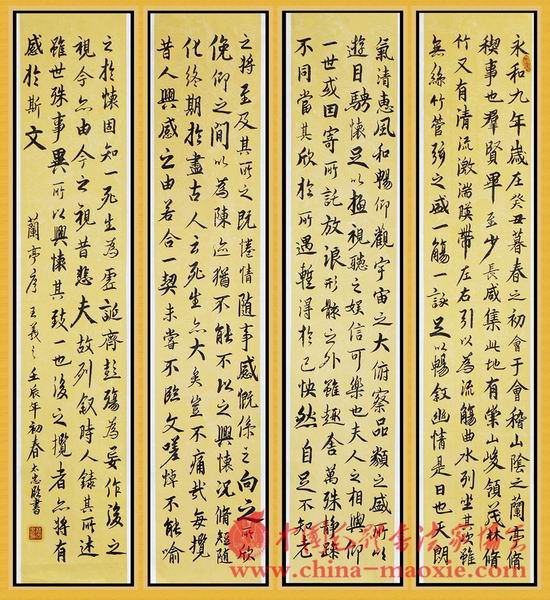 永和九年歲在癸丑暮春之初會于會稽山陰之蘭亭脩
稧事也羣賢畢至少長咸集此地有崇山峻領茂林脩
竹又有清流激湍暎帶左右引以為流觴曲水列坐其次雖
無絲竹管弦之盛一觴一詠足以暢敘幽情是日也天朗
氣清惠風和暢仰觀宇宙之大俯察品類之盛所以
遊目騁懷足以極視聽之娛信可樂也夫人之相與仰
一世或因寄所託放浪形骸之外雖趣舍萬殊靜躁
不同當其欣於所遇暫得於己怏然自足不知老
之將至及其所之既惓情隨事感慨係之向之所欣
俛仰之間以為陳迹猶不能不以之興懷況脩短隨
化終期於盡古人云死生亦大矣豈不痛哉每攬
昔人興感之由若合一契未嘗不臨文嗟悼不能喻
之於懷固知一死生為虛誕齊彭殤為妄作後之
視今亦由今之視昔悲夫故列敘時人錄其所述
雖世殊事異所以興懷其致一也後之攬者亦將有
感於斯文 蘭亭序 王羲之 壬辰年初春 太忠 書
www.china-maoxie.com